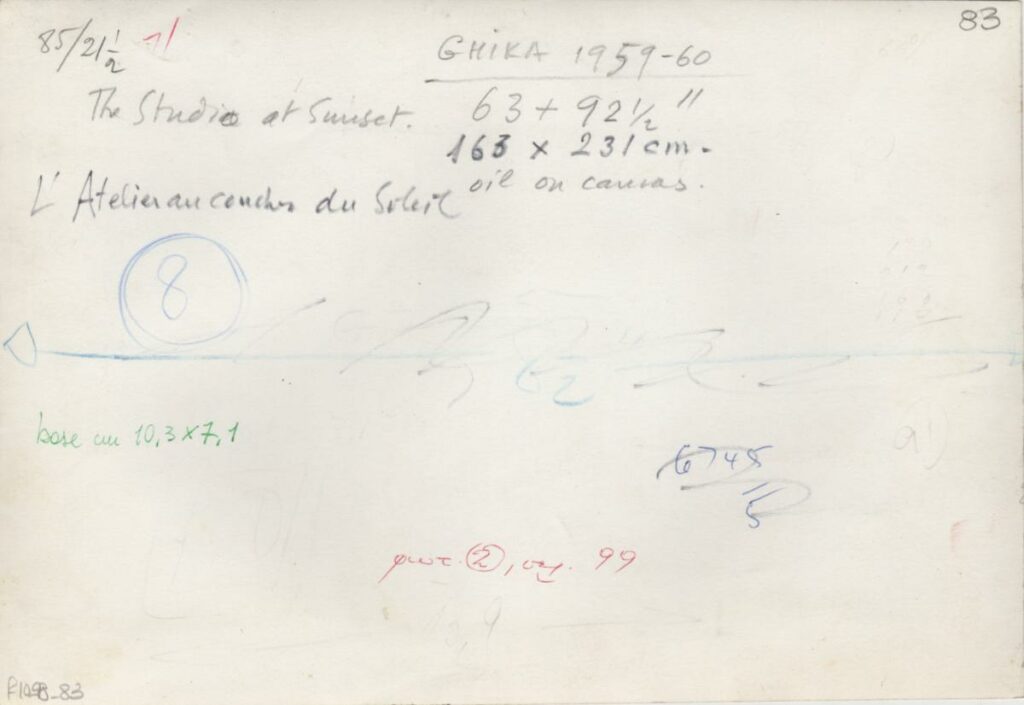 85/21 1/2 83
GHIKA 1959-60
The Studio at Sunset.
63 + 92 1/2 "
163 x 231 cm.
oil on canvas.
L'Atelier au coucher du Soleil
8
62
base cm 10,3 x 7,1
6748
15
φωτ. 2, 99